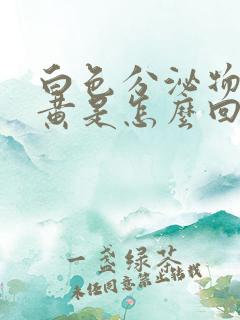 白色分泌物
黄是怎麼回
一盏绿茶
未经同意禁止转载